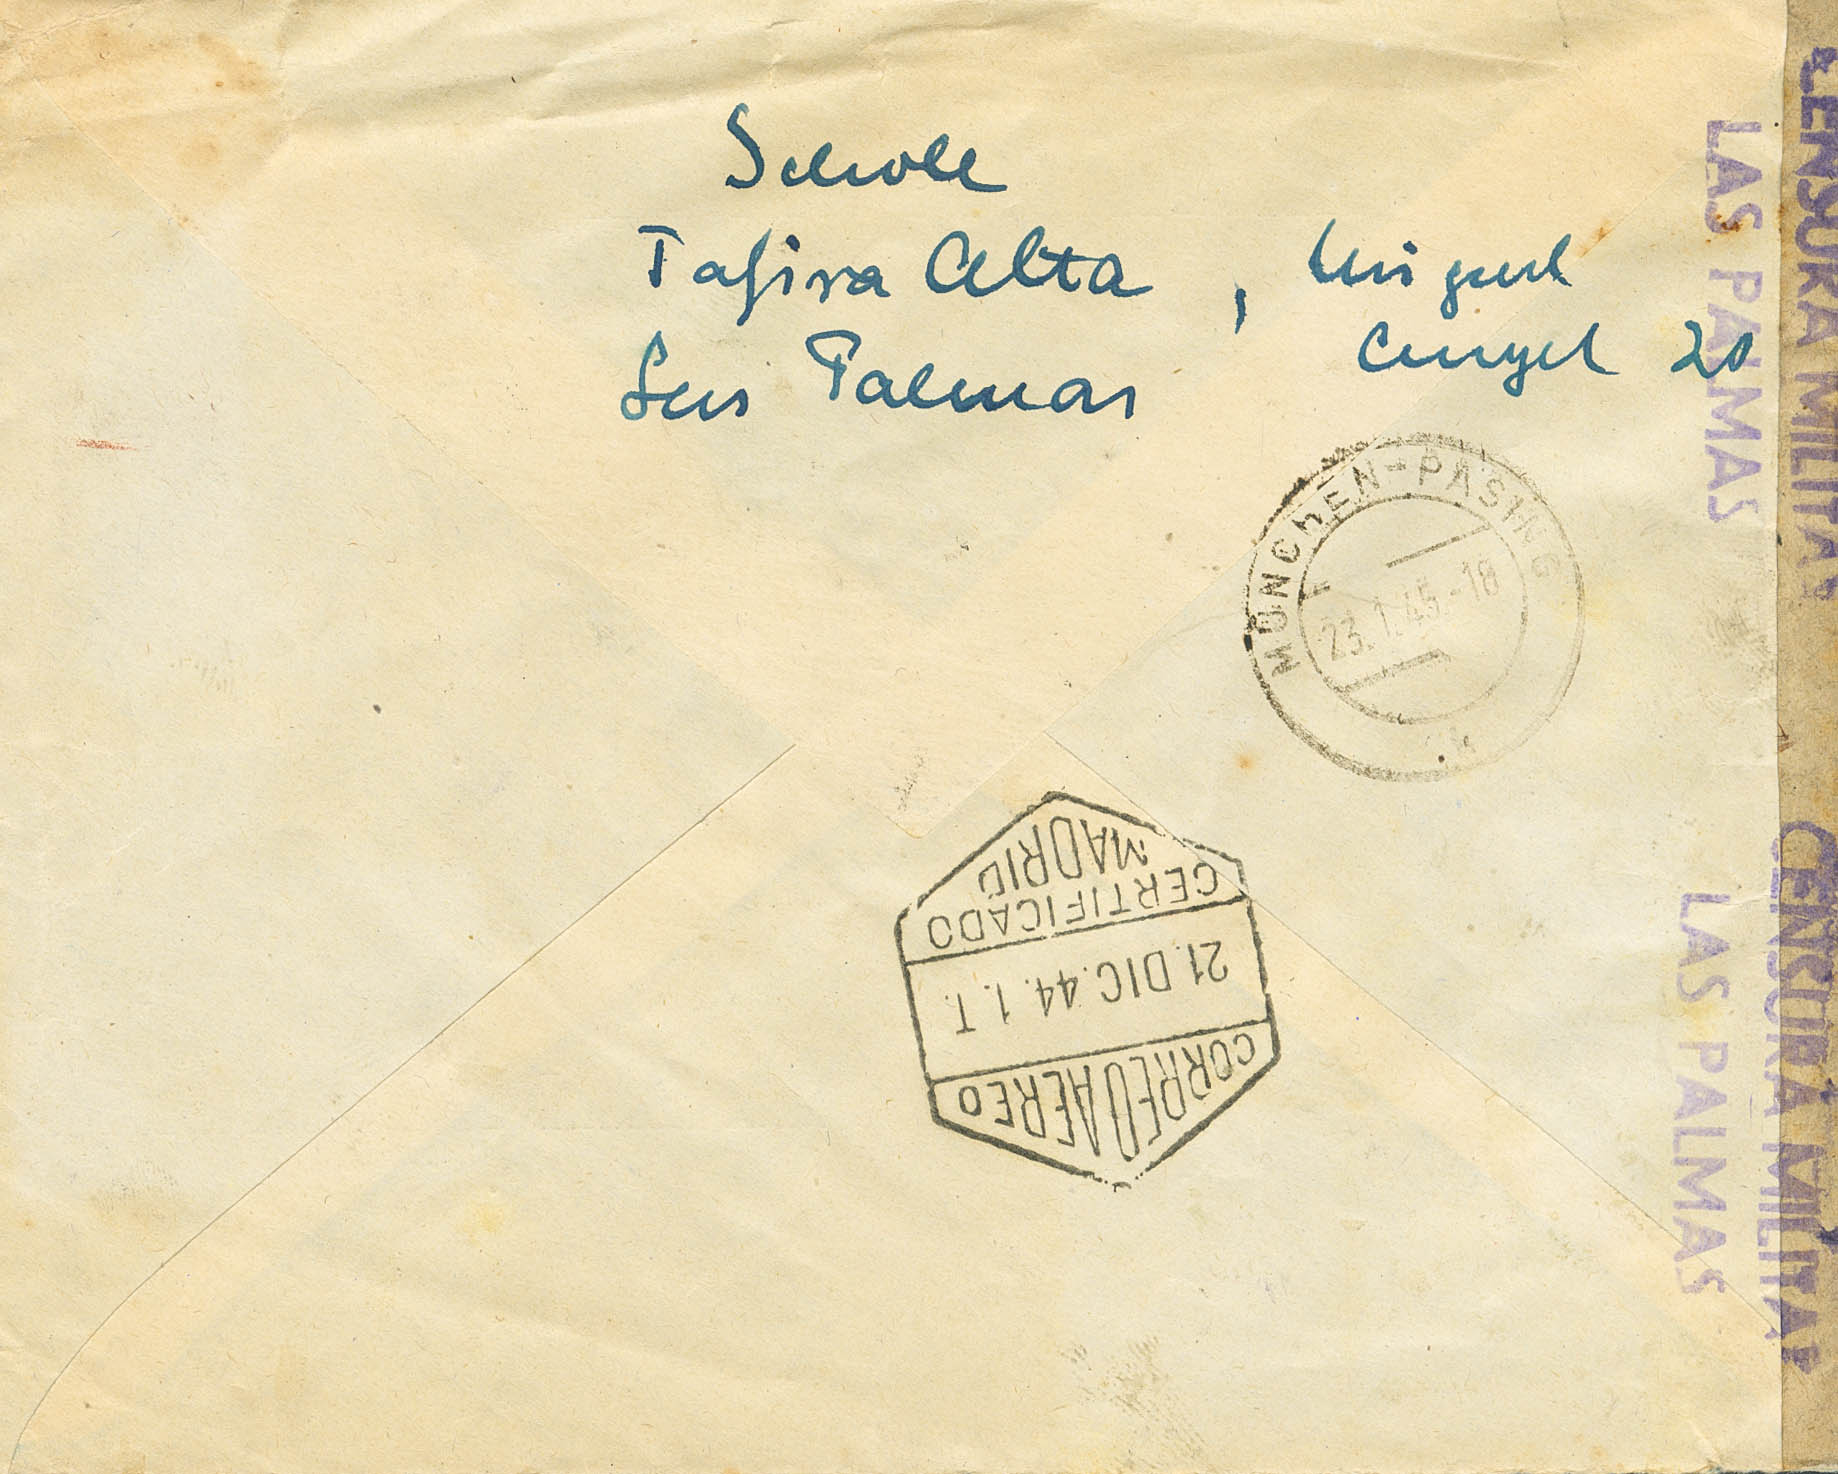 Scholl
Tafira Alta, Miguel
Las Palmas
Angel 20
MÜNCHEN-PASING
23.1.45.-18
CORREO AEREO
21.DIC.44.1.T.
CERTIFICADO
MADRID
CENSURA MILITAR
LAS PALMAS
CENSURA MILITAR
CENSURA MILITAR
LAS PALMAS